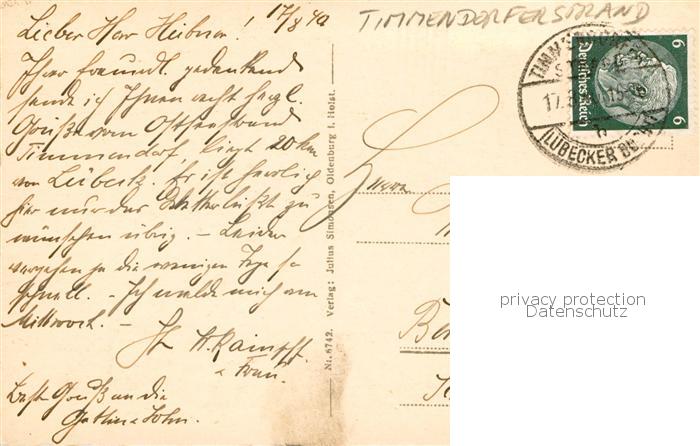 17/8 40
TIMMENDORFERSTRAND
Lieber Herr Heibner!
Ihrer freundl. gedenkend
sende ich Ihnen recht herzl.
Grüße vom Ostseestrand
Timmendorf, liegt 20 km
von Lübeck. Es ist herrlich
hier nur das Wetter läßt zu
wünschen übrig. – Leider
vergehen ja die wenigen Tage so
schnell. – Ich melde mich am
Mittwoch. –
H. Kampff
u. Frau.
Beste Grüße an die
Gattin u. Sohn.
Nr. 6742. Verlag: Julius Simonsen, Oldenburg i. Holst.
Herrn
6
Deutsches Reich
6
17.8.
h
(LÜBECKER
privacy protection
Datenschutz